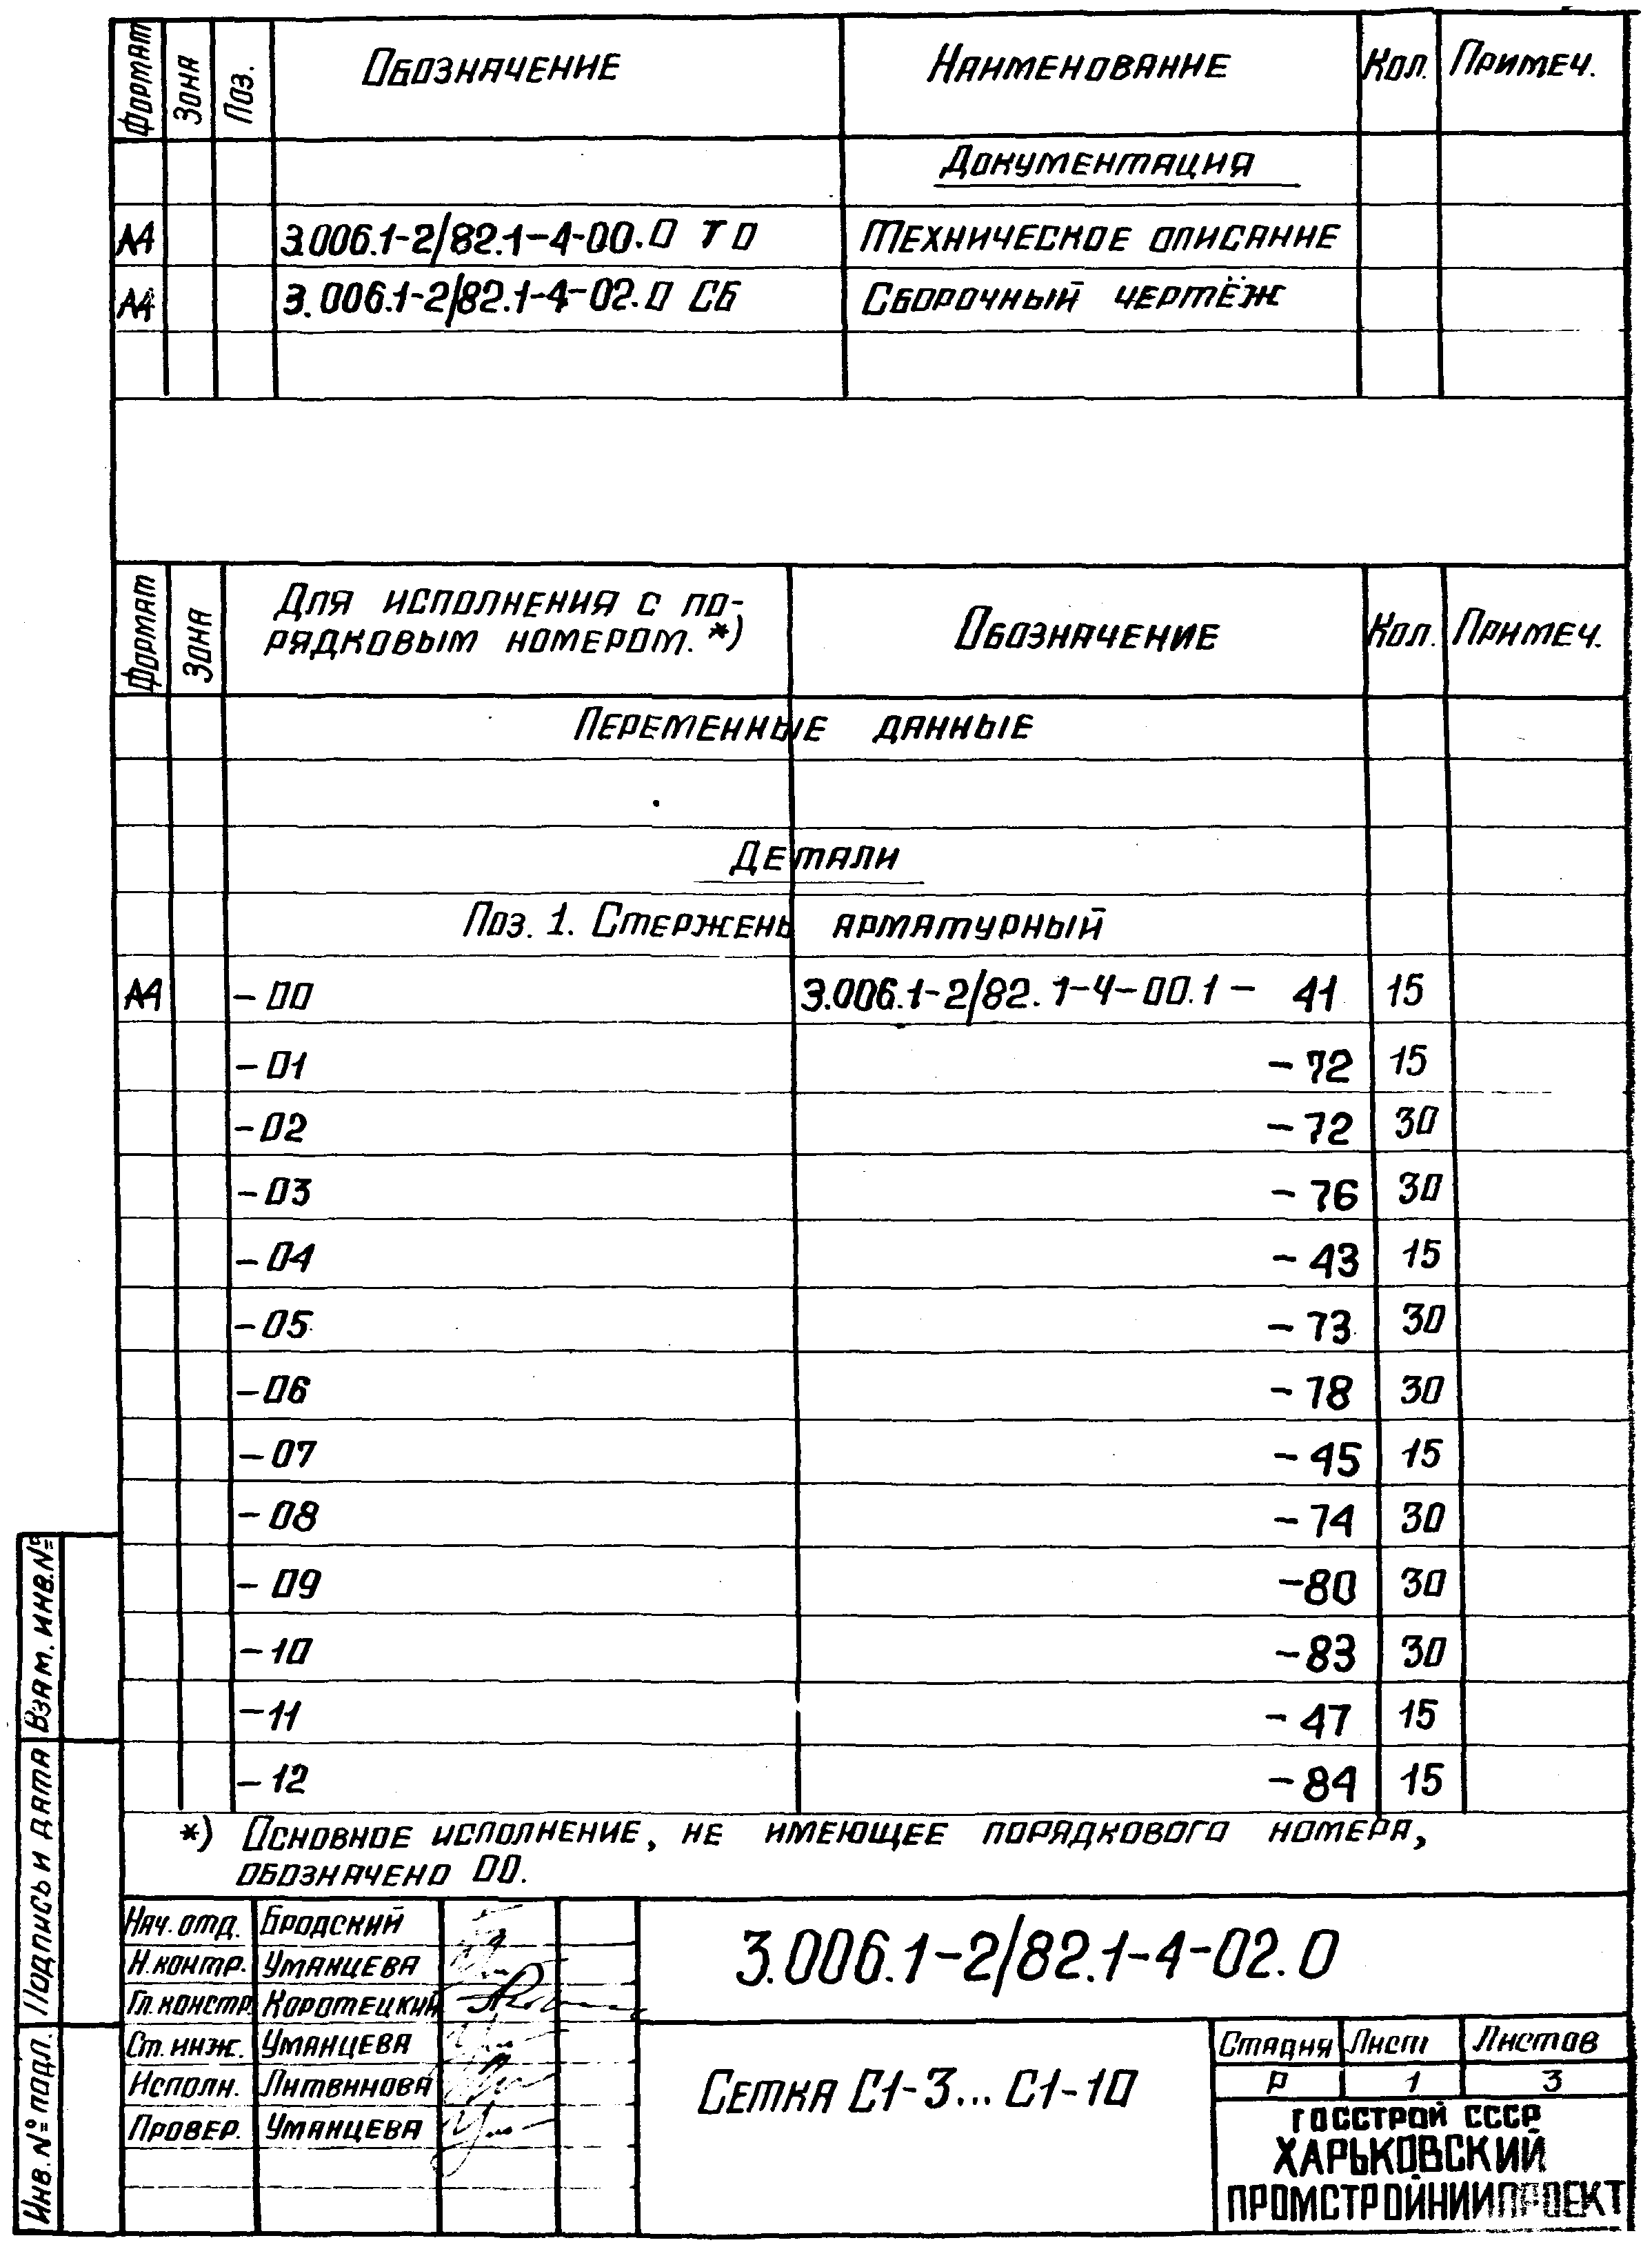 Формат Зона Поз. Обозначение Наименование Кол. Примеч.
Документация
А4 3.006.1-2/82.1-4-00.0 ТО Техническое описание
А4 3.006.1-2/82.1-4-02.0 СБ Сборочный чертёж
Формат Зона Для исполнения с по-
рядковым номером.*) Обозначение Кол. Примеч.
Переменные данные
Детали
Поз. 1. Стержень арматурный
А4 -00 3.006.1-2/82.1-4-00.1- 41 15
-01 -72 15
-02 -72 30
-03 -76 30
-04 -43 15
-05 -73 30
-06 -78 30
-07 -45 15
-08 -74 30
-09 -80 30
-10 -83 30
-11 -47 15
-12 -84 15
*) Основное исполнение, не имеющее порядкового номера,
обозначено 00.
Взам. инв. №
Подпись и дата
Инв. № подл.
Нач. отд. Бродский
Н. контр. Уманцева
Гл. констр. Коротецкий
Ст. инж. Уманцева
Исполн. Литвинова
Провер. Уманцева
3.006.1-2/82.1-4-02.0
Сетка С1-3... С1-10
Стадия Лист Листов
Р 1 3
ГОССТРОЙ СССР
ХАРЬКОВСКИЙ
ПРОМСТРОЙНИИПРОЕКТ